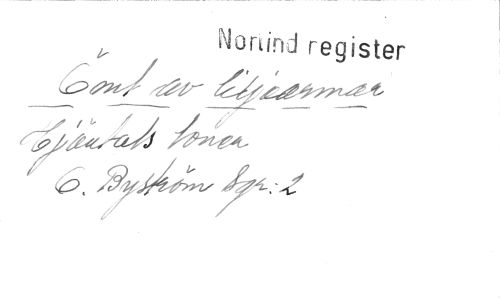 Norlind register
Ömt av liljearmar
Hjärtats toner
O. Byström Sgr: 2